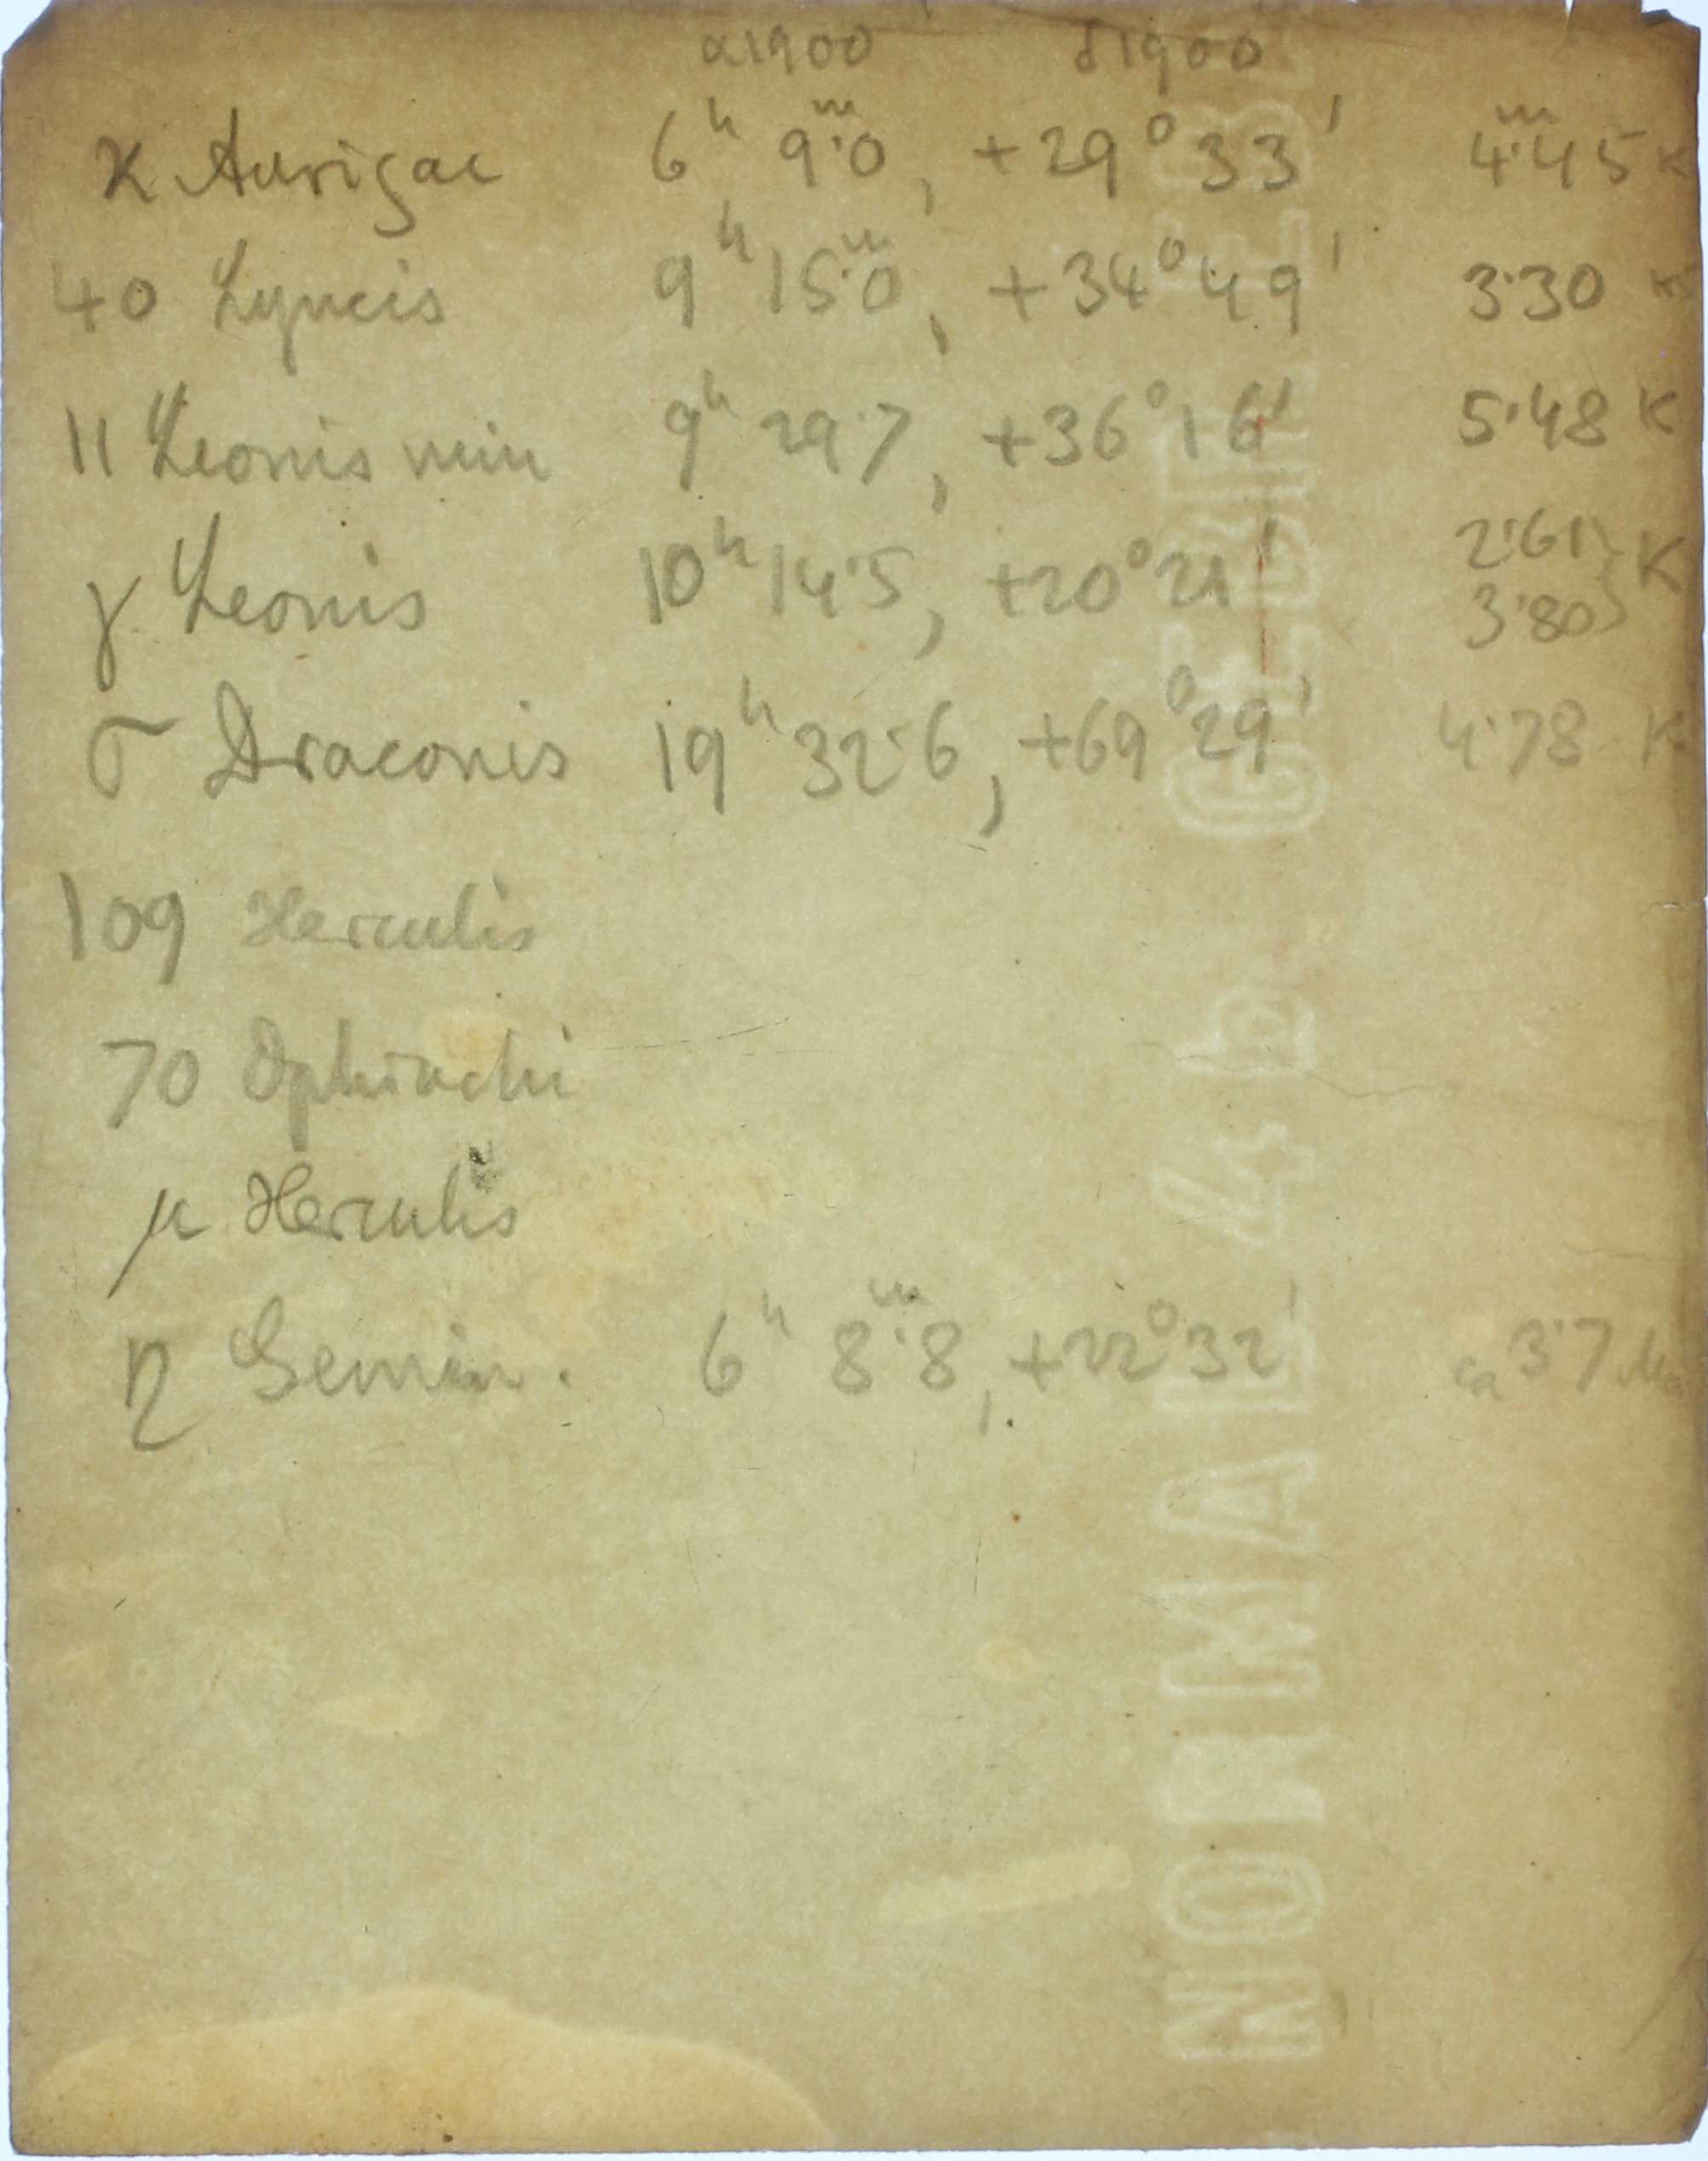 α1900 δ1900
κ Aurigae 6ʰ 9ᵐ.0, +29°33' 4ᵐ.45 K
40 Lyncis 9ʰ 15ᵐ.0, +34°49' 3.30 K
11 Leonis min 9ʰ 29.7, +36°16' 5.48 K
γ Leonis 10ʰ 14.5, +20°21' 2.61 3.80 } K
σ Draconis 19ʰ 32.6, +69°29' 4.78 K
109 Herculis
70 Ophiuchi
μ Herculis
η Gemin. 6ʰ 8ᵐ.8, +22°32' ca 3.7
NORMAL 4b